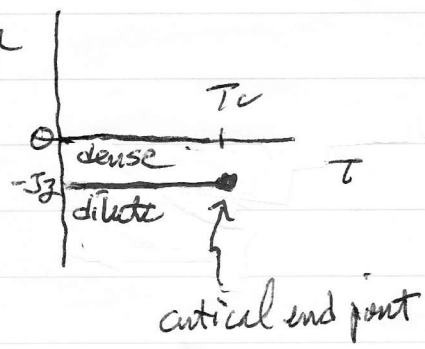 Tc
0
dense
T
-Jz
dilute
critical end point